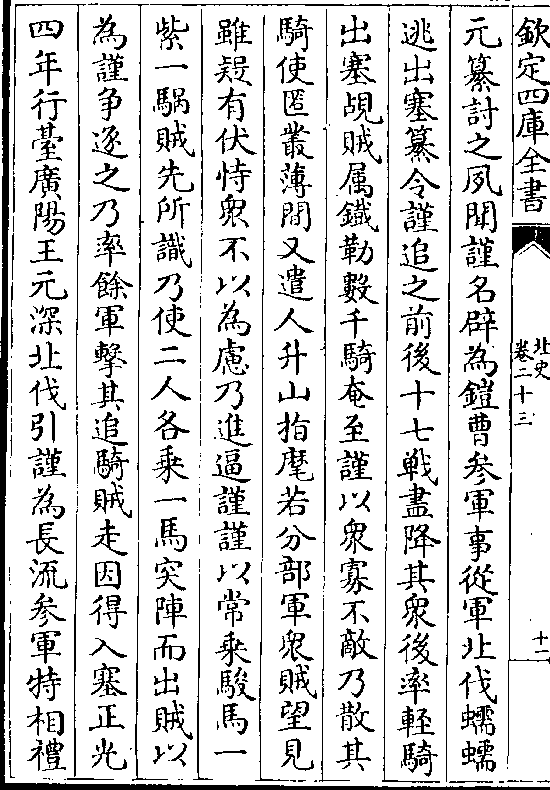 欽定四庫全書
北史
卷二十三
十二
元纂討之夙聞謹名辟為鎧曹參軍事從軍北伐蠕蠕
逃出塞纂令謹追之前後十七戰盡降其衆後率輕騎
出塞覘賊属鐵勒數千騎奄至謹以衆寡不敵乃散其
騎使匿叢薄間又遣人升山指麾若分部軍衆賊望見
雖疑有伏恃衆不以為慮乃進逼謹謹以常乘駿馬一
紫一騧賊先所識乃使二人各乘一馬突陣而出賊以
為謹争逐之乃率餘軍擊其追騎賊走因得入塞正光
四年行臺廣陽王元深北伐引謹為長流參軍特相禮